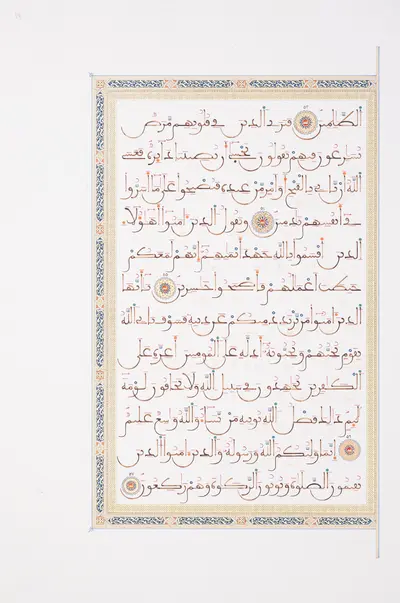 الظلمين فترى الذين في قلوبهم مرض
يسرعون فيهم يقولون نخشى أن تصيبنا دائرة فعسى
الله أن يأتي بالفتح أو أمر من عنده فيصبحوا على ما أسروا
في أنفسهم ندمين ويقول الذين ءامنوا أهؤلاء
الذين أقسموا بالله جهد أيمنهم إنهم لمعكم
حبطت أعملهم فأصبحوا خسرين يأيها
الذين ءامنوا من يرتد منكم عن دينه فسوف يأتي الله
بقوم يحبهم ويحبونه أذلة على المؤمنين أعزة على
الكفرين يجهدون في سبيل الله ولا يخافون لومة
لائم ذلك فضل الله يؤتيه من يشاء والله وسع عليم
إنما وليكم الله ورسوله والذين ءامنوا الذين
يقيمون الصلوة ويؤتون الزكوة وهم ركعون